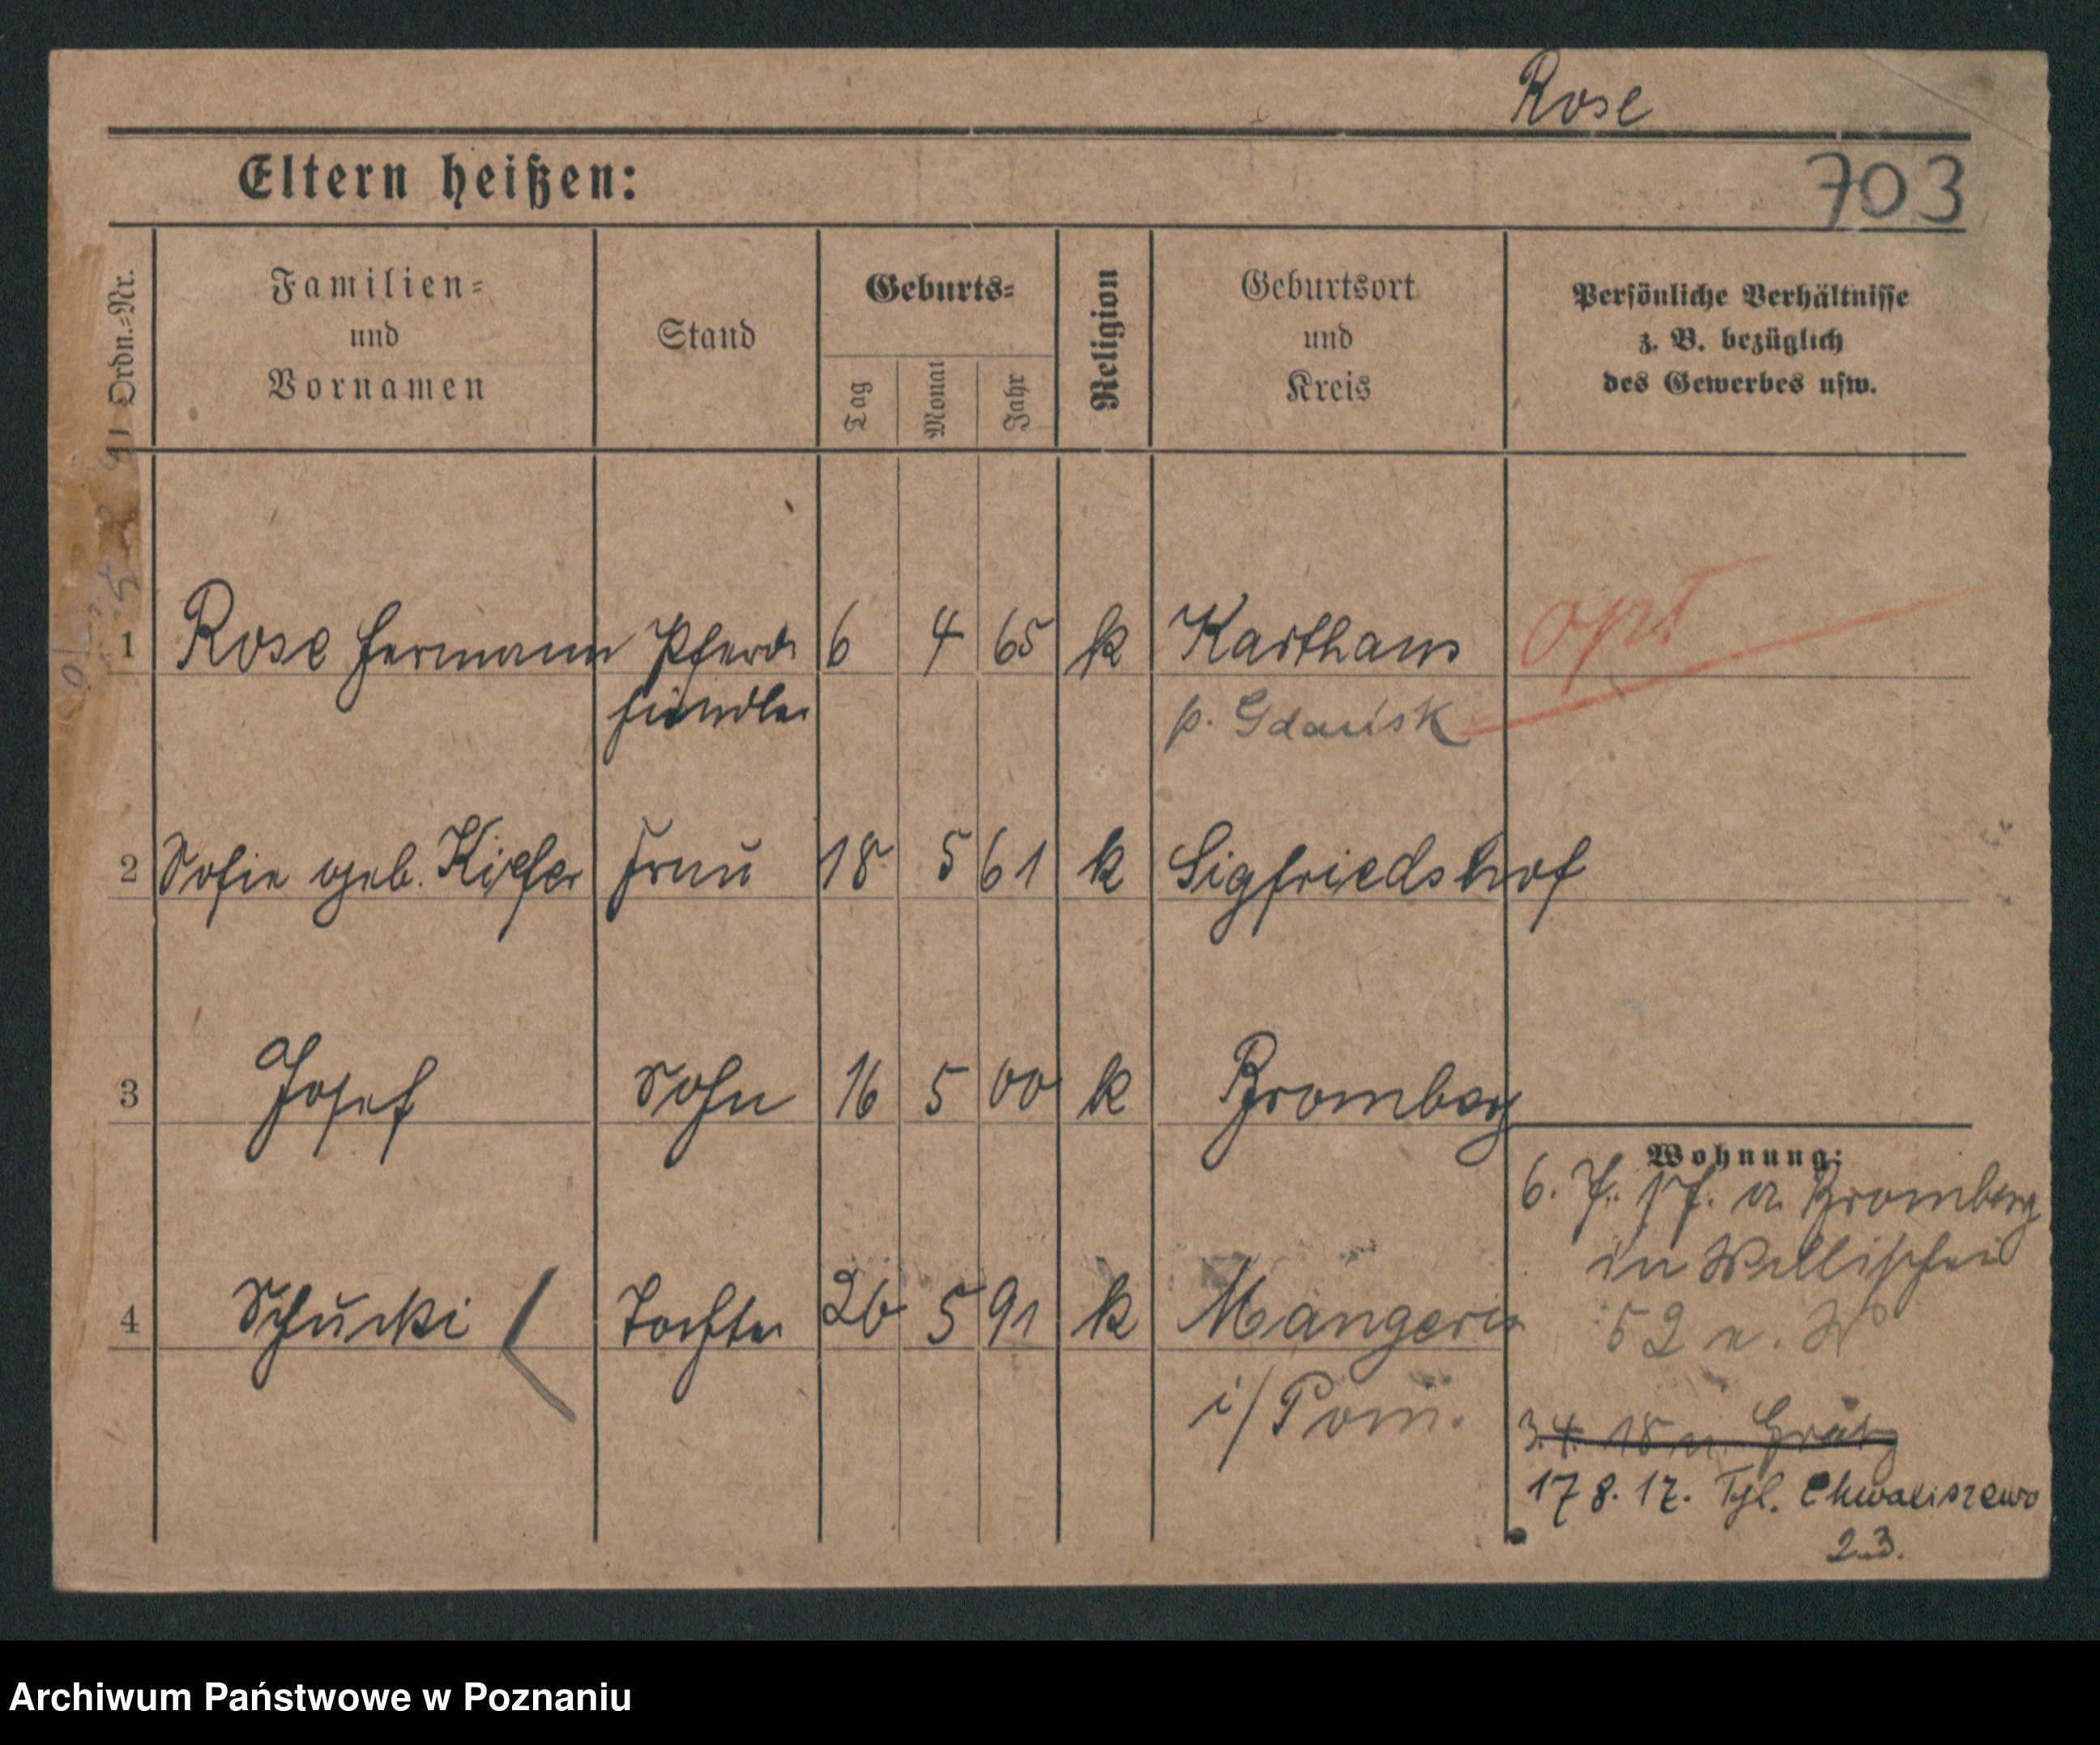 Rose
Eltern heißen:
703
Ordn.=Nr.
Familien=
und
Vornamen
Stand
Geburts=
Tag
Monat
Jahr
Religion
Geburtsort
und
Kreis
Persönliche Verhältnisse
z. B. bezüglich
des Gewerbes usw.
1 Rose Hermann Pferde 6 4 65 k Karthaus opt
händler p. Gdańsk
2 Sofie geb. Kiefer Frau 18 5 61 k Sigfriedshof
3 Josef Sohn 16 5 00 k Bromberg
Wohnung:
6. a Bromberg
in Wallischei
52
4 Schucki Tochter 26 5 91 k
i/Pom.
3.4. 18 n. Grätz
17 8. 17. Tgl. Chwaliszewo
23.
Archiwum Państwowe w Poznaniu